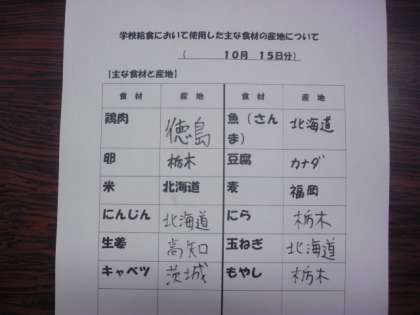 学校給食において使用した主な食材の産地について
( 10月 15日分)
【主な食材と産地】
食材 産地 食材 産地
鶏肉 徳島 魚（さんま） 北海道
卵 栃木 豆腐 カナダ
米 北海道 麦 福岡
にんじん 北海道 にら 栃木
生姜 高知 玉ねぎ 北海道
キャベツ 茨城 もやし 栃木